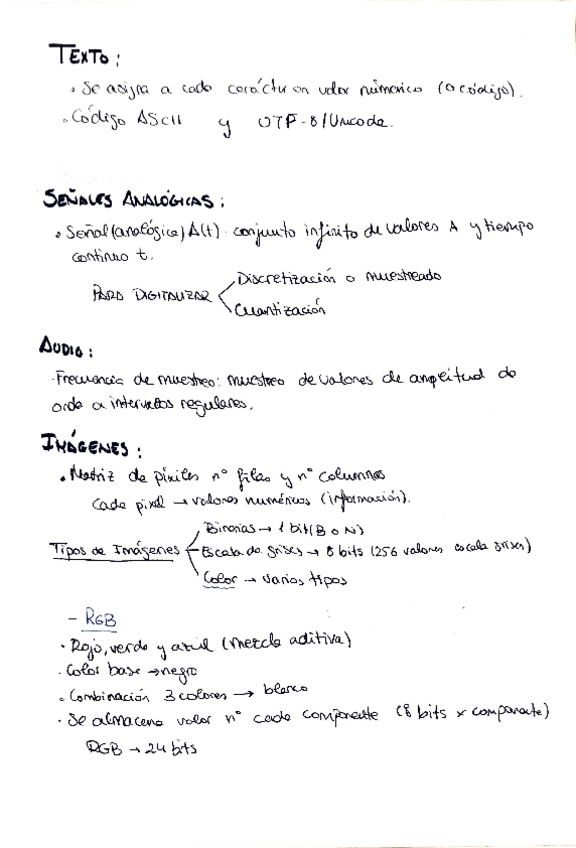 TEXTO:
· Se asigna a cada carácter un valor númerico (o código).
· Código ASCII y UTF-8/Unicode.
SEÑALES ANALÓGICAS:
· Señal (analógica) A(t) conjunto infinito de valores A y tiempo
continuo t.
PARA DIGITALIZAR
Discretización o muestreado
Cuantización
AUDIO:
· Frecuencia de muestreo: muestreo de valores de amplitud de
onda a intervalos regulares.
IMÁGENES:
· Matriz de píxiles nº filas y nº columnas
Cada pixel → valores numéricos (información).
Binarias → 1 bit (B o N)
Tipos de Imágenes
Escala de grises → 8 bits (256 valores escala grises)
Color → varios tipos
- RGB
· Rojo, verde y azul (mezcla aditiva)
· Color base → negro
· Combinación 3 colores → blanco
· Se almacena valor nº cada componente (8 bits x componente)
RGB → 24 bits